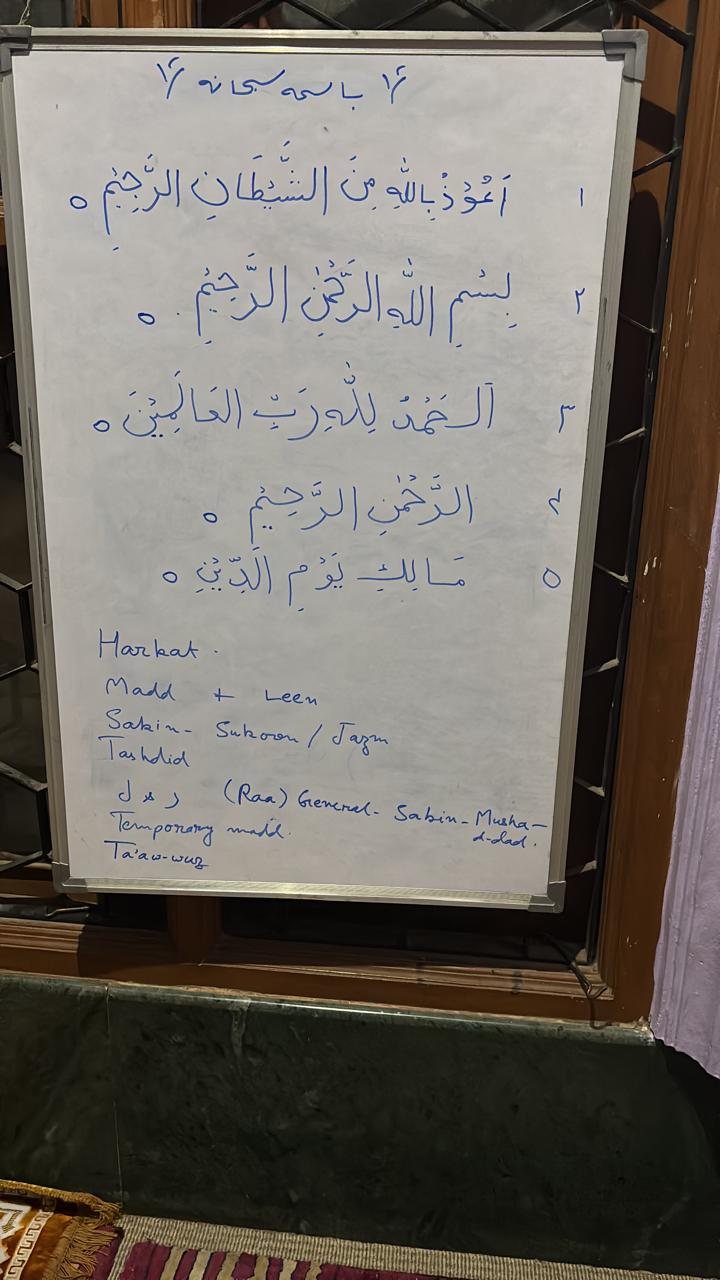 باسمہ سبحانہ
١ اَعُوْذُ بِاللّٰهِ مِنَ الشَّيْطَانِ الرَّجِيْمِ ہ
٢ بِسْمِ اللّٰهِ الرَّحْمٰنِ الرَّحِيْمِ ہ
٣ اَلْحَمْدُ لِلّٰهِ رَبِّ الْعَالَمِيْنَ ہ
٤ الرَّحْمٰنِ الرَّحِيْمِ ہ
٥ مَالِكِ يَوْمِ الدِّيْنِ ہ
Harkat.
Madd + Leen
Sakin- Sukoon / Jazm
Tashdid
(Raa) General- Sakin- Musha-
d-dad.
Temporary madd.
Ta'aw-wuz